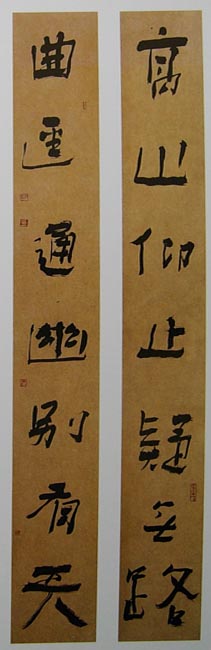 高山仰止疑无路
曲逕通幽别有天